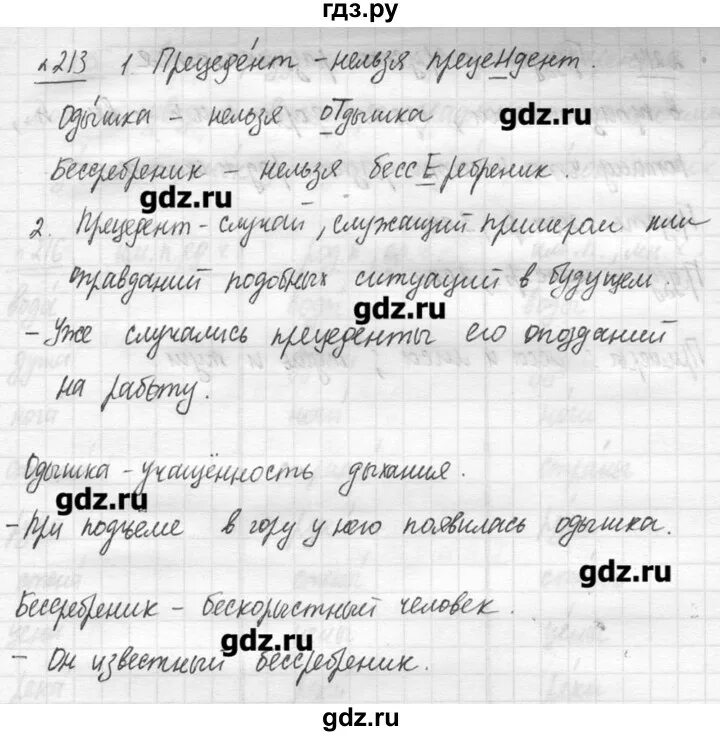 гдз.ру
н 213 1. Прецеде́нт - нельзя прецеНдент.
Оды́шка - нельзя оТдышка
gdz.ru
Бессребреник - нельзя бессЕребреник.
gdz.ru
2. Прецедент - случай, служащий примером или
оправданий подобных ситуаций в будущем.
gdz.ru
- Уже случались прецеденты его опозданий
на работу.
Одышка - учащённость дыхания.
gdz.ru
- При подъёме в гору у него появилась одышка.
gdz.ru
Бессребреник - бескорыстный человек.
gdz.ru
- Он известный бессребреник.
gdz.ru